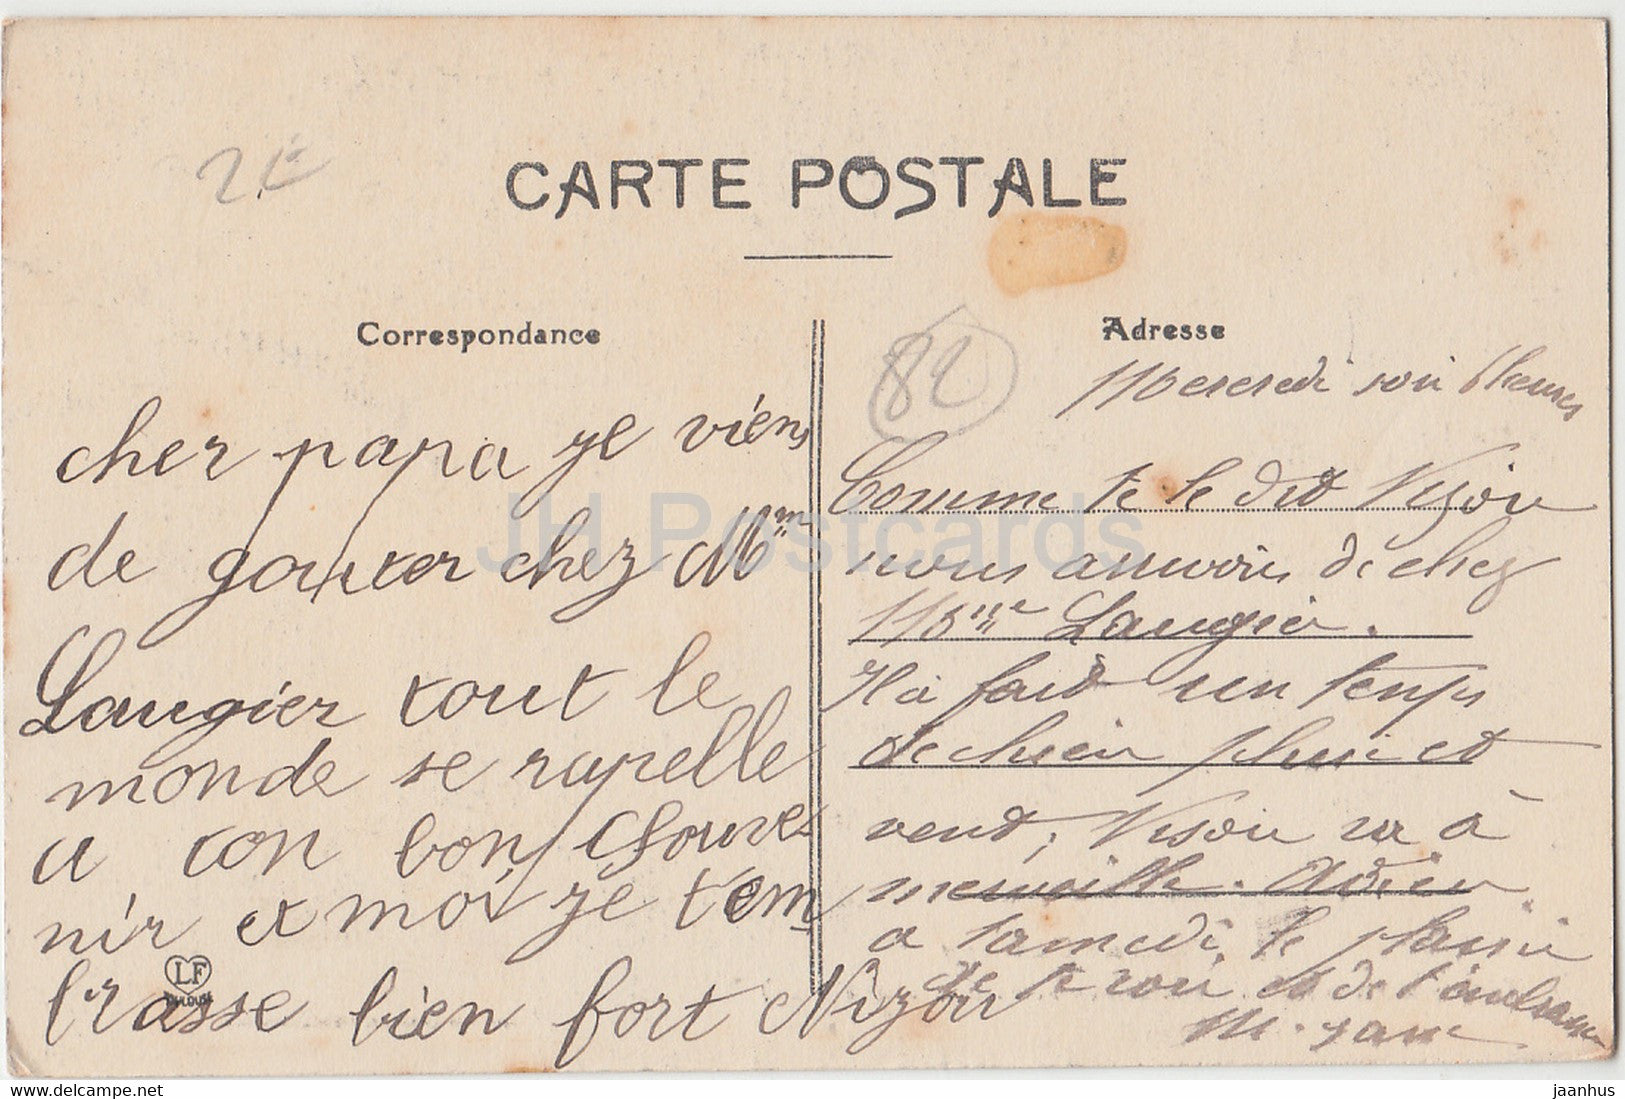 2€
CARTE POSTALE
Correspondance
cher papa je viens
de gouter chez Mme
Laugier tout le
monde se rapelle
a ton bon souve
nir et moi je t'em
brasse bien fort Nizou
LF
TOULOUSE
82
Adresse
Mercredi soir 6 heures
Comme te le dit Nizou
nous arrivons de chez
Mme Laugier.
Il a fait un temps
de chien pluie et
vent, Nizou va à
merveille. Adieu
a samedi, le plaisir
de te voir et de t'embrasser
JH Postcards
jaanhus
https://www.delcampe.net